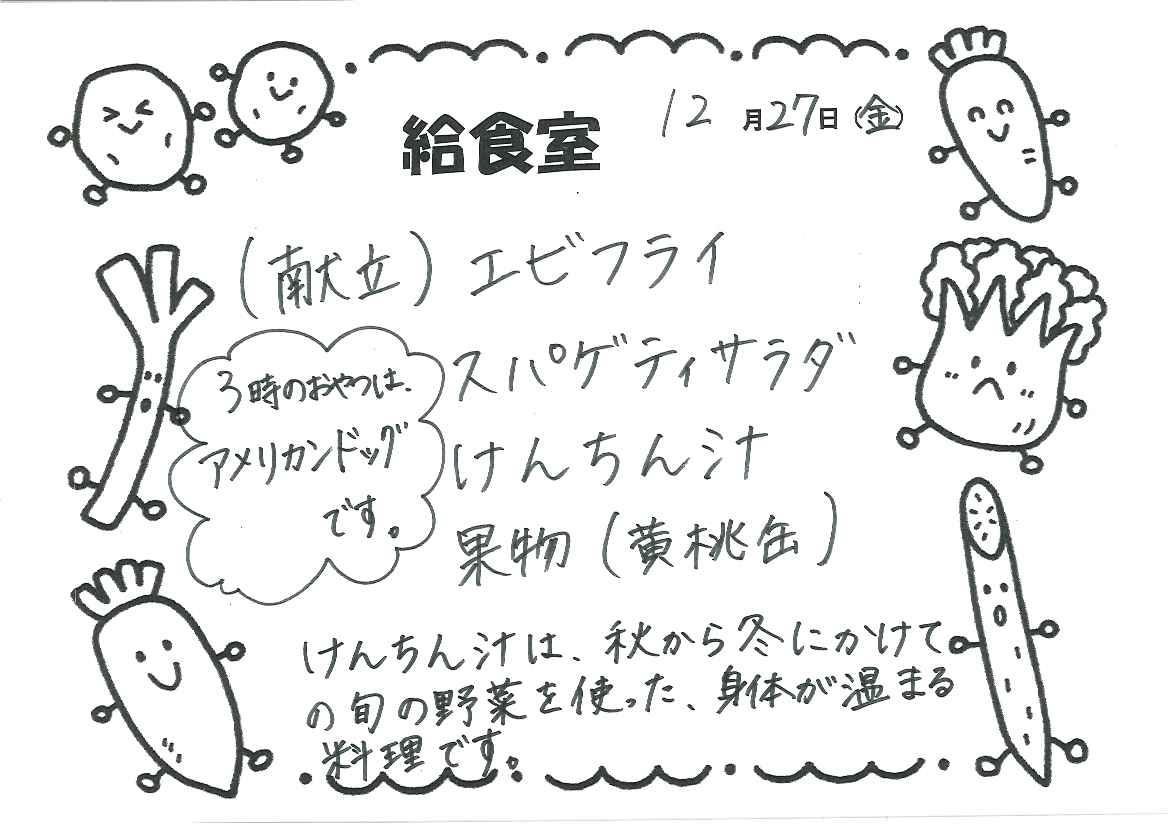 給食室
12月27日(金)
(献立) エビフライ
スパゲティサラダ
けんちん汁
果物(黄桃缶)
3時のおやつは、
アメリカンドッグ
です。
けんちん汁は、秋から冬にかけて
の旬の野菜を使った、身体が温まる
料理です。